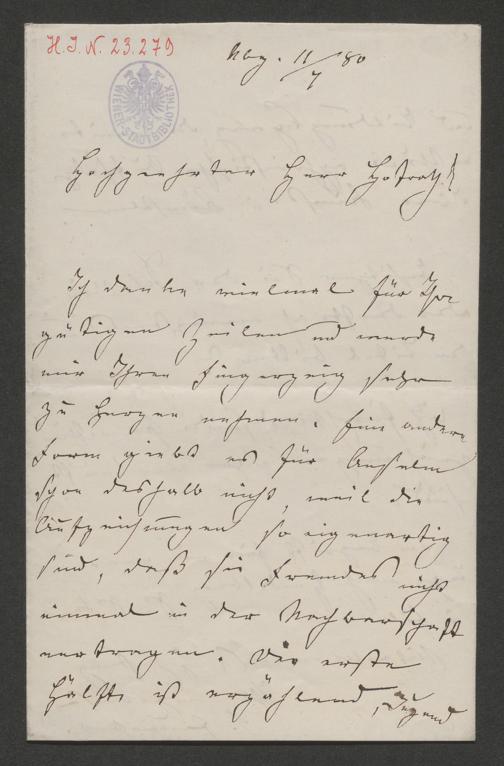 H.I.N. 23.279
WIENER STADTBIBLIOTHEK
Nbg. 11/7 80
Hochgeehrter Herr Hofrath!
Ich danke vielmal für Ihre
gütigen Zeilen und werde
mir Ihren Fingerzeig sehr
zu Herzen nehmen. Eine andere
Form giebt es für Anselm
schon deshalb nicht, weil die
Aufzeichnungen so eigenartig
sind, daß sie Fremdes nicht
einmal in der Nachbarschaft
vertragen. Die erste
Hälfte ist erzählend, Jugend